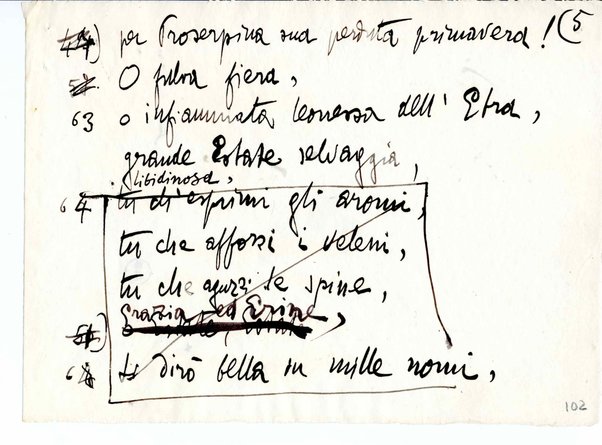 44) per Proserpina sua perduta primavera! (5
O fulva fiera,
63 o infiammata leonessa dell' Etra,
grande Estate selvaggia,
libidinosa,
64 tu ch' esprimi gli aromi,
tu che affozi i veleni,
tu che aguzzi le spine,
Grazia ed Erine,
68 ti dirò bella in mille nomi,
102